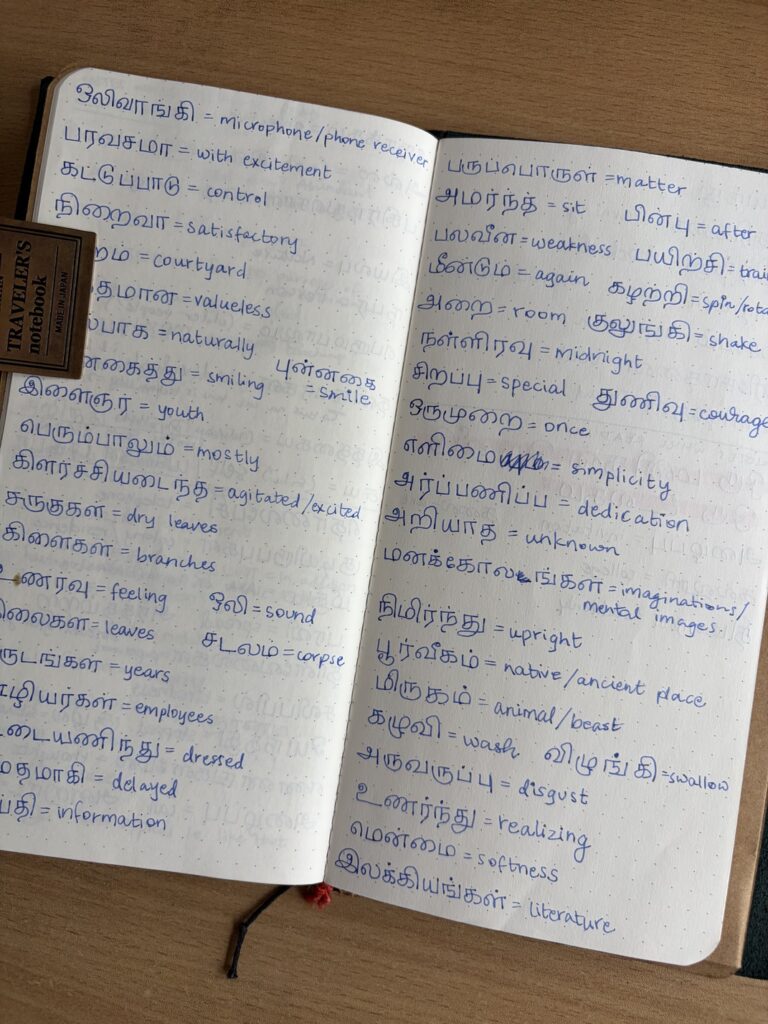 ஒலிவாங்கி = microphone/phone receiver
பரவசமா = with excitement
கட்டுப்பாடு = control
நிறைவா = satisfactory
றம் = courtyard
தமான = valueless
ல்பாக = naturally
னகைத்து = smiling புன்னகை = smile
இளைஞர் = youth
பெரும்பாலும் = mostly
கிளர்ச்சியடைந்த = agitated/excited
சருகுகள் = dry leaves
கிளைகள் = branches
உணர்வு = feeling ஒலி = sound
இலைகள் = leaves சடலம் = corpse
ருடங்கள் = years
ஊழியர்கள் = employees
டையணிந்து = dressed
மதமாகி = delayed
தி = information
TRAVELER'S
notebook
MADE IN JAPAN
பருப்பொருள் = matter
அமர்ந்த = sit பின்பு = after
பலவீன = weakness பயிற்சி = trai
மீண்டும் = again சுழற்றி = spin/rota
அறை = room குலுங்கி = shake
நள்ளிரவு = midnight
சிறப்பு = special துணிவு = courage
ஒருமுறை = once
எளிமை = simplicity
அர்ப்பணிப்ப = dedication
அறியாத = unknown
மனக்கோலங்கள் = imaginations/
mental images
நிமிர்ந்து = upright
பூர்வீகம் = native/ancient place
மிருகம் = animal/beast
கழுவி = wash விழுங்கி = swallow
அருவருப்பு = disgust
உணர்ந்து = realizing
மென்மை = softness
இலக்கியங்கள் = literature